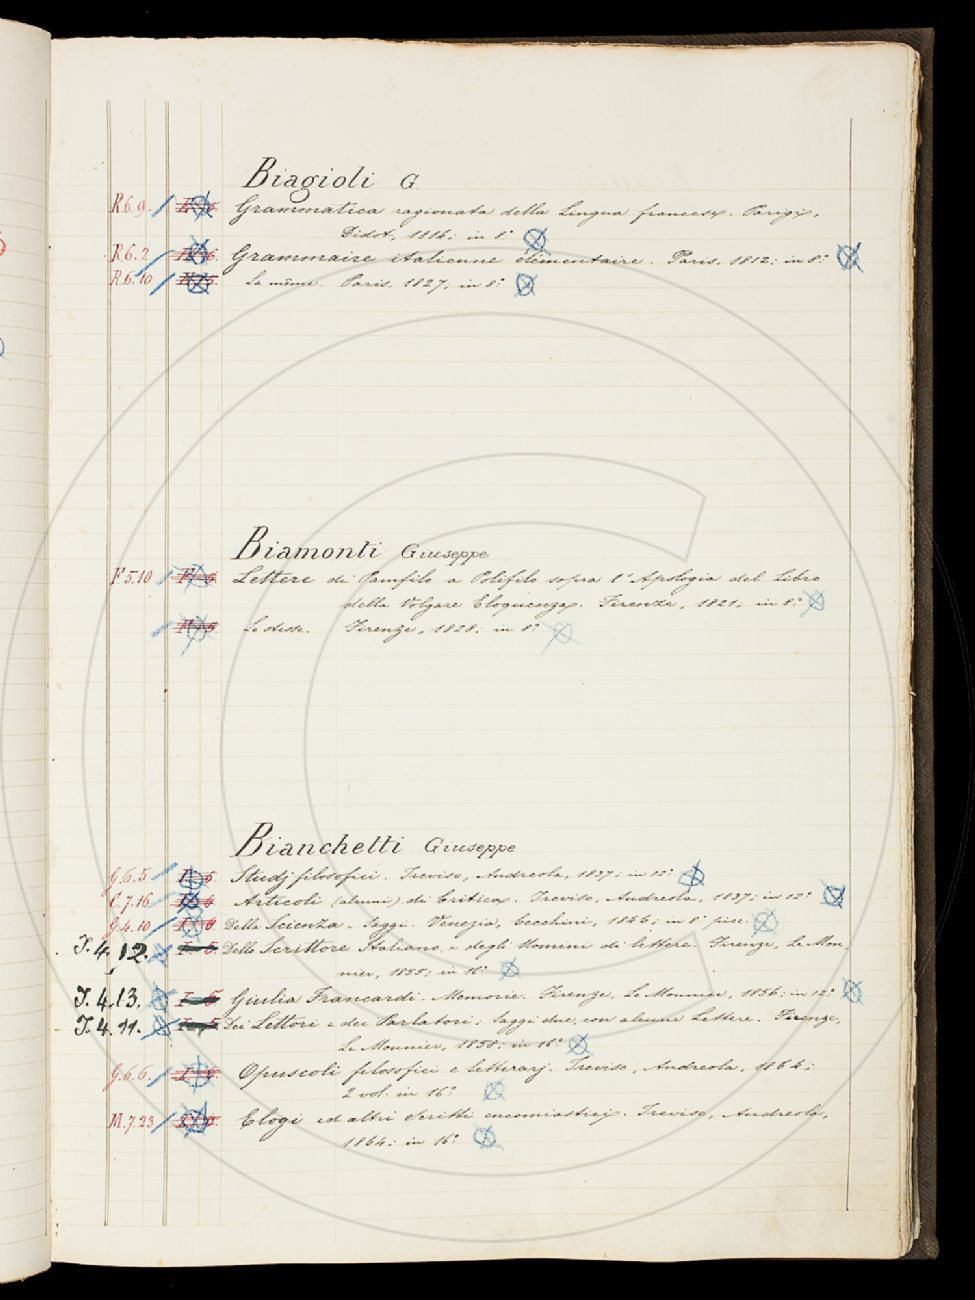 Biagioli G.
R.6.9. Grammatica ragionata della Lingua francese. Parigi,
Didot, 1814; in 8°
R.6.2 Grammaire italienne élémentaire. Paris, 1812; in 8°
R.6.10 La même. Paris, 1827; in 8°
Biamonti Giuseppe
F5.10 Lettere di Pamfilo a Polifilo sopra l'Apologia del Libro
della Volgare Eloquenza. Firenze, 1821; in 8°
Le stesse. Firenze, 1828; in 8°
Bianchetti Giuseppe
G.6.5 Studj filosofici. Treviso, Andreola, 1837; in 12°
C.7.16 Articoli (alcuni) di Critica. Treviso, Andreola, 1837; in 12°
G.4.10 Della Scienza. Saggi. Venezia, Cecchini, 1846; in 8° picc.
I.4.12. Dello Scrittore Italiano e degli Uomini di lettere. Firenze, Le Mon,
nier, 1855; in 16°
I.4.13. Giulia Francardi. Memorie. Firenze, Le Monnier, 1856; in 12°
I.4.11. Dei Lettori e dei Parlatori; Saggi due, con alcune Lettere. Firenze,
Le Monnier, 1858; in 16°
G.6.6. Opuscoli filosofici e letterarj. Treviso, Andreola, 1864;
2 vol. in 16°
M.7.23 Elogi ed altri Scritti encomiastici. Treviso, Andreola,
1864; in 16°